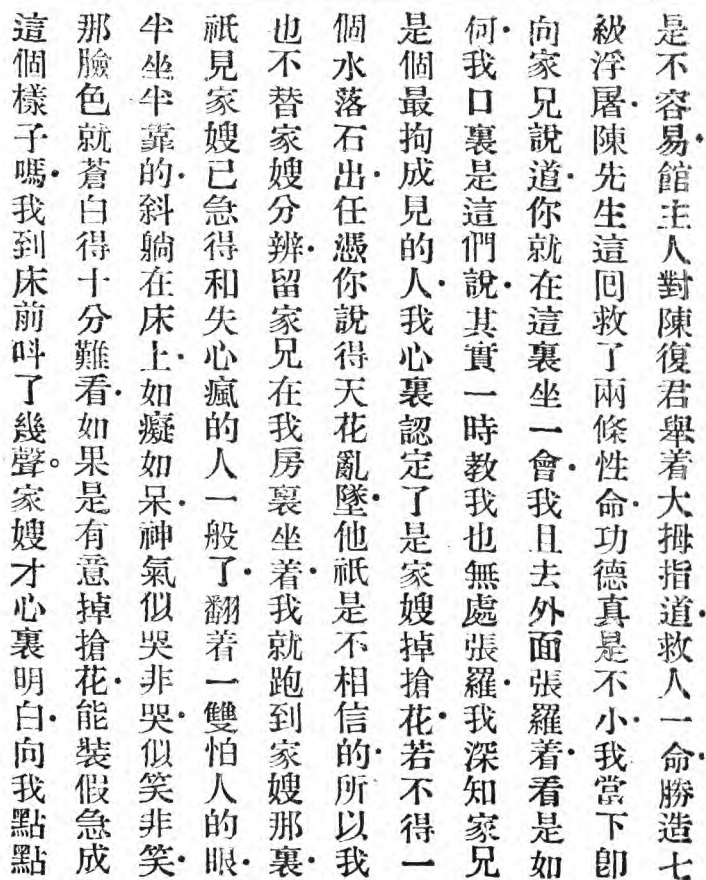 是不容易・館主人對陳復君舉着大拇指道・救人一命・勝造七
級浮屠・陳先生這回救了兩條性命・功德真是不小・我當下卽
向家兄說道・你就在這裏坐一會・我且去外面張羅着・看是如
何・我口裏是這們說・其實一時教我也無處張羅・我深知家兄
是個最拘成見的人・我心裏認定了是家嫂掉搶花・若不得一
個水落石出・任憑你說得天花亂墜・他祇是不相信的・所以我
也不替家嫂分辨・留家兄在我房裏坐着・我就跑到家嫂那裏・
祇見家嫂已急得和失心瘋的人一般了・翻着一雙怕人的眼・
半坐半靠的・斜躺在床上・如癡如呆・神氣似哭非哭・似笑非笑・
那臉色就蒼白得十分難看・如果是有意掉搶花・能裝假急成
這個樣子嗎・我到床前呌了幾聲。家嫂才心裏明白・向我點點